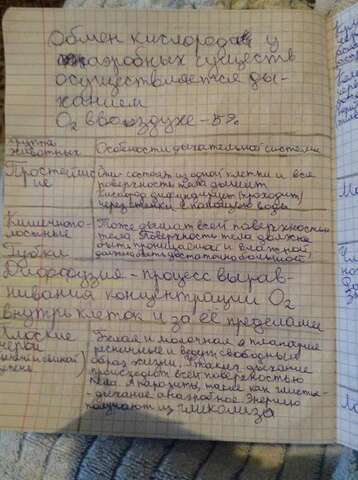 Обмен кислорода у
аэробных существ
осуществляется ды-
ханием
O₂ в воздухе -
группа животных
Особенности дыхательной системы
Простейш
ие
Они состоят из одной клетки и вся
поверхность тела дышит.
Кислород диффундирует (проходит)
через стенки в
Кишечнопо-
лостные
Губки
Тоже дышит всей поверхностью
тела. Поверхность тела должна
быть проницаемой и влажной
должна быть достаточно большой
Диффузия - процесс вырав-
нивания концентрации O₂
внутри клеток и за её пределами
Плоские
черви
Белая и молочная планарии
ресничные и ведут свободный
образ жизни, у таких дыхание
происходит всей поверхностью
тела. А паразиты, такие как глисты
- дыхание анаэробное. Энергию
получают из гликолиза